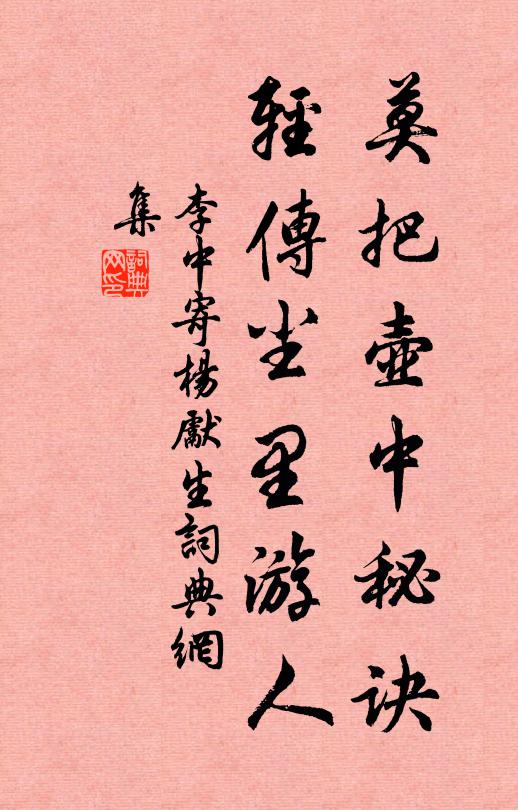 莫把壺中秘诀
輕傳尘里游人
李中寄楊獻生詞典網
集
詞典
网印